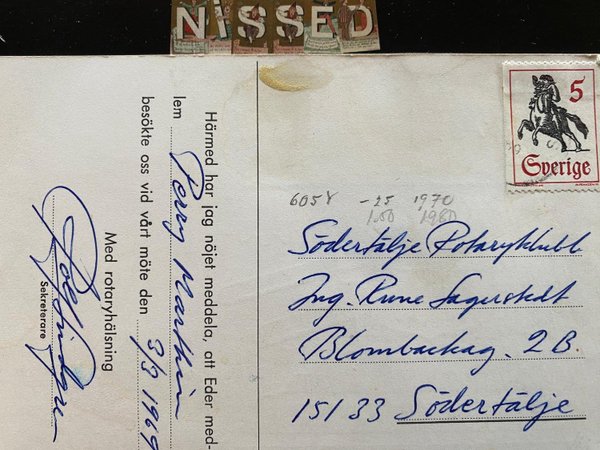 NiSSED
5
Sverige
6058 -25 1970
1.00 1980
Södertälje Rotaryklubb
Ing. Rune Lagerstedt
Blombackag. 2 B.
151 33 Södertälje
Härmed har jag nöjet meddela, att Eder med-
lem Perry Marthin
besökte oss vid vårt möte den 3/9 1969
Med rotaryhälsning
Sekreterare